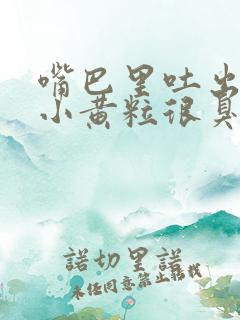 嘴巴里吐出
小黄粒很臭
諾切里諾
未经同意禁止转载